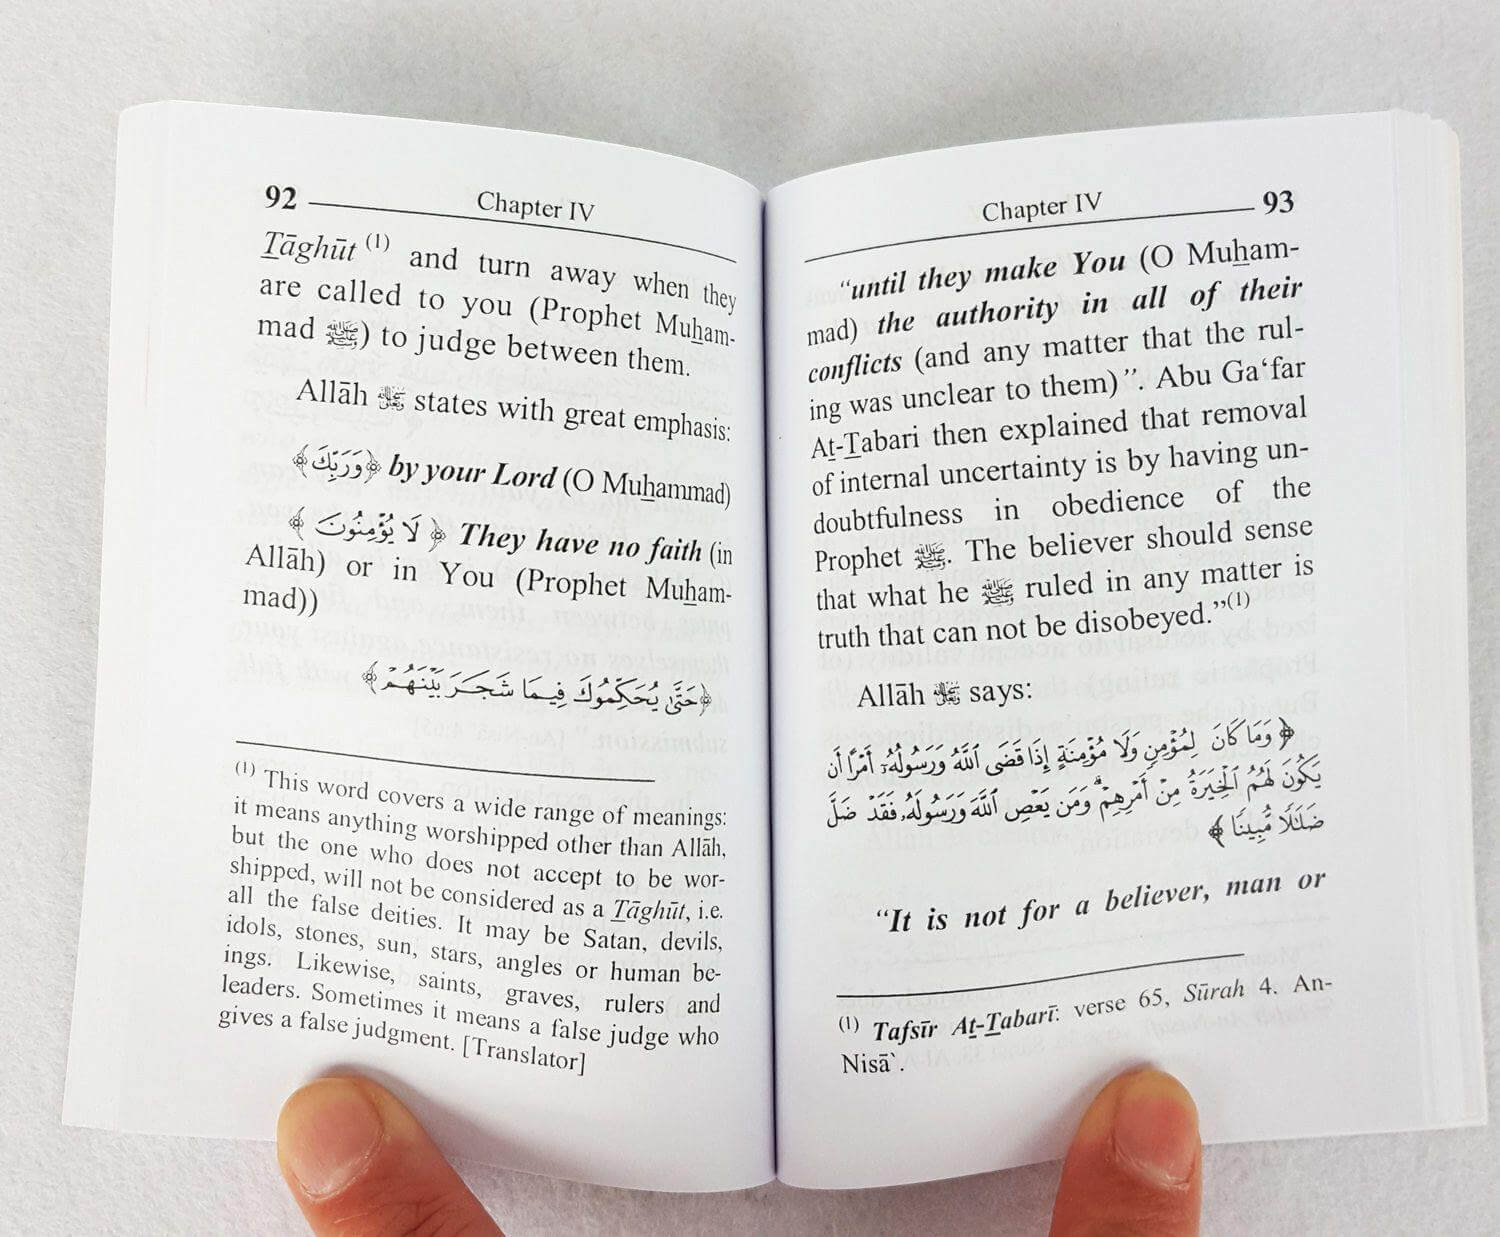 92 Chapter IV
Tāghūt (1) and turn away when they
are called to you (Prophet Muḥam-
mad ﷺ) to judge between them.
Allāh states with great emphasis:
﴿وَرَبِّكَ﴾ by your Lord (O Muḥammad)
﴿لَا يُؤْمِنُونَ﴾ They have no faith (in
Allāh) or in You (Prophet Muḥam-
mad))
﴿حَتَّىٰ يُحَكِّمُوكَ فِيمَا شَجَرَ بَيْنَهُمْ﴾
(1) This word covers a wide range of meanings:
it means anything worshipped other than Allāh,
but the one who does not accept to be wor-
shipped, will not be considered as a Tāghūt, i.e.
all the false deities. It may be Satan, devils,
idols, stones, sun, stars, angles or human be-
ings. Likewise, saints, graves, rulers and
leaders. Sometimes it means a false judge who
gives a false judgment. [Translator]
Chapter IV 93
“until they make You (O Muḥam-
mad) the authority in all of their
conflicts (and any matter that the rul-
ing was unclear to them)”. Abu Ga‘far
Aṯ-Ṯabari then explained that removal
of internal uncertainty is by having un-
doubtfulness in obedience of the
Prophet ﷺ. The believer should sense
that what he ﷺ ruled in any matter is
truth that can not be disobeyed.”(1)
Allāh says:
﴿وَمَا كَانَ لِمُؤْمِنٍ وَلَا مُؤْمِنَةٍ إِذَا قَضَى ٱللَّهُ وَرَسُولُهُۥٓ أَمْرًا أَن
يَكُونَ لَهُمُ ٱلْخِيَرَةُ مِنْ أَمْرِهِمْ ۗ وَمَن يَعْصِ ٱللَّهَ وَرَسُولَهُۥ فَقَدْ ضَلَّ
ضَلَـٰلًا مُّبِينًا﴾
“It is not for a believer, man or
(1) Tafsīr Aṯ-Ṯabarī: verse 65, Sūrah 4. An-
Nisā`.